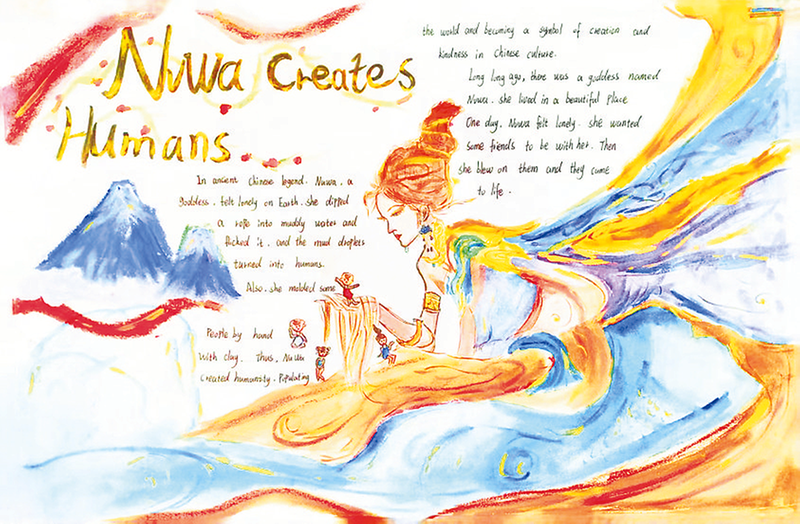 Nuwa Creates
Humans
In ancient Chinese legend. Nuwa, a
goddess, felt lonely on Earth. She dipped
a rope into muddy water and
flicked it, and the mud droplets
turned into humans.
Also, she molded some
People by hand
with clay. Thus, Nuwa
created humanity. Populating
the world and becoming a symbol of creation and
kindness in Chinese culture.
Long long ago, there was a goddess named
Nuwa. she lived in a beautiful place
One day, Nuwa felt lonely. she wanted
some friends to be with her. Then
she blew on them and they came
to life.